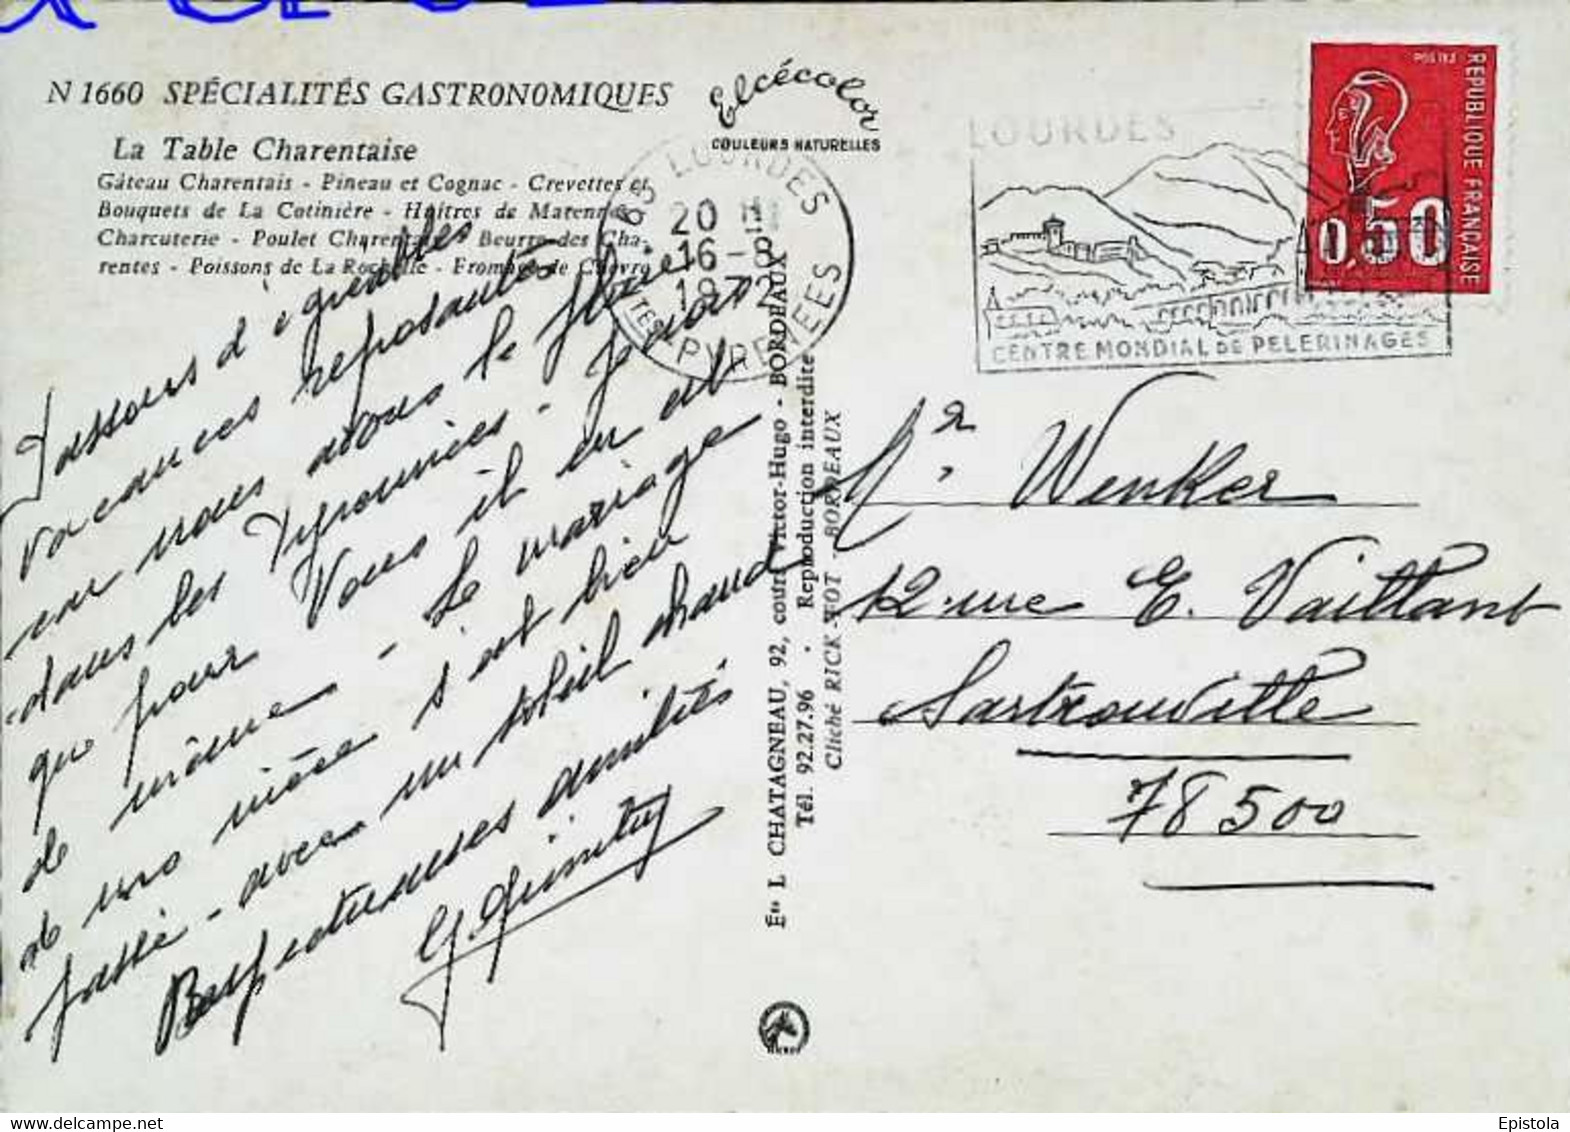 N 1660 SPÉCIALITÉS GASTRONOMIQUES
La Table Charentaise
Gâteau Charentais - Pineau et Cognac - Crevettes et
Bouquets de La Cotinière - Huîtres de Marennes
Charcuterie - Poulet Charentais - Beurre des Cha-
rentes - Poissons de La Rochelle - Fromage de Chèvre
Elcécolor
COULEURS NATURELLES
65 LOURDES
20 H
16-8
1972
PYRENEES
LOURDES
CENTRE MONDIAL DE PELERINAGES
POSTES
REPUBLIQUE FRANÇAISE
0,50
Passons d'agréables
vacances reposantes
car nous avons le
dans les Pyrénnées - J'espère
que pour Vous il en est
de même - Le mariage
de ma nièce s'est bien
passé - avec un soleil chaud
Respectueuses amitiés
Éts L CHATAGNEAU, 92, cours Victor-Hugo - BORDEAUX
Tél. 92.27.96 - Reproduction interdite
Cliché RICK STOT - BORDEAUX
Mr Wenker
12 rue E. Vaillant
Sartrouville
78500
Epistola